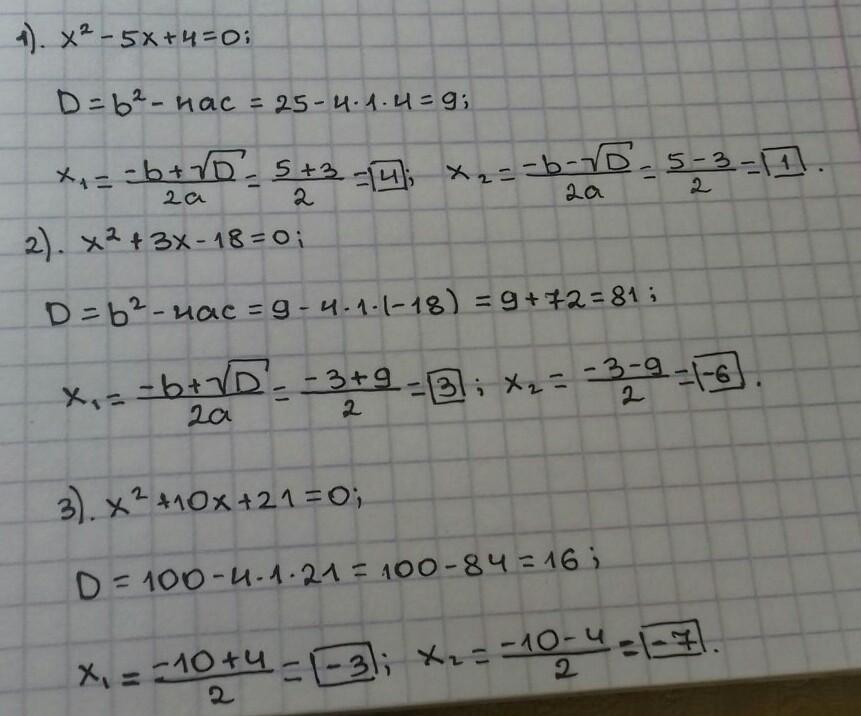 1). x² - 5x + 4 = 0;
D = b² - 4ac = 25 - 4·1·4 = 9;
x₁ = (-b + √D)/(2a) = (5 + 3)/2 = 4; x₂ = (-b - √D)/(2a) = (5 - 3)/2 = 1.
2). x² + 3x - 18 = 0;
D = b² - 4ac = 9 - 4·1·(-18) = 9 + 72 = 81;
x₁ = (-b + √D)/(2a) = (-3 + 9)/2 = 3; x₂ = (-3 - 9)/2 = -6.
3). x² + 10x + 21 = 0;
D = 100 - 4·1·21 = 100 - 84 = 16;
x₁ = (-10 + 4)/2 = -3; x₂ = (-10 - 4)/2 = -7.